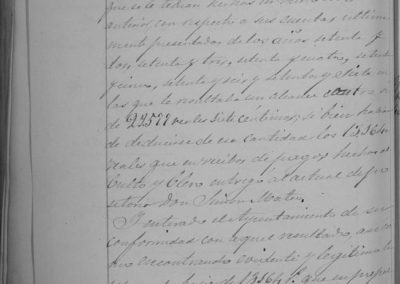 que se le
anterior, con respecto a sus cuentas ultima
mente presentadas de los años setenta y
dos, setenta y tres, setenta y cuatro, setenta
y cinco, setenta y seis y setenta y siete en
las que le resultaba un alcance contra
de 22577 reales siete centimos; si bien habian
de deducirse de esa cantidad los 13564
reales que en recibos de pagos hechos al
Culto y Clero entregó al actual depo
sitario Don Simon Mateu.
Y enterado el Ayuntamiento de su
conformidad con aquel resultado, asi co
mo encontrando corriente y legitimo
de 13564 que su